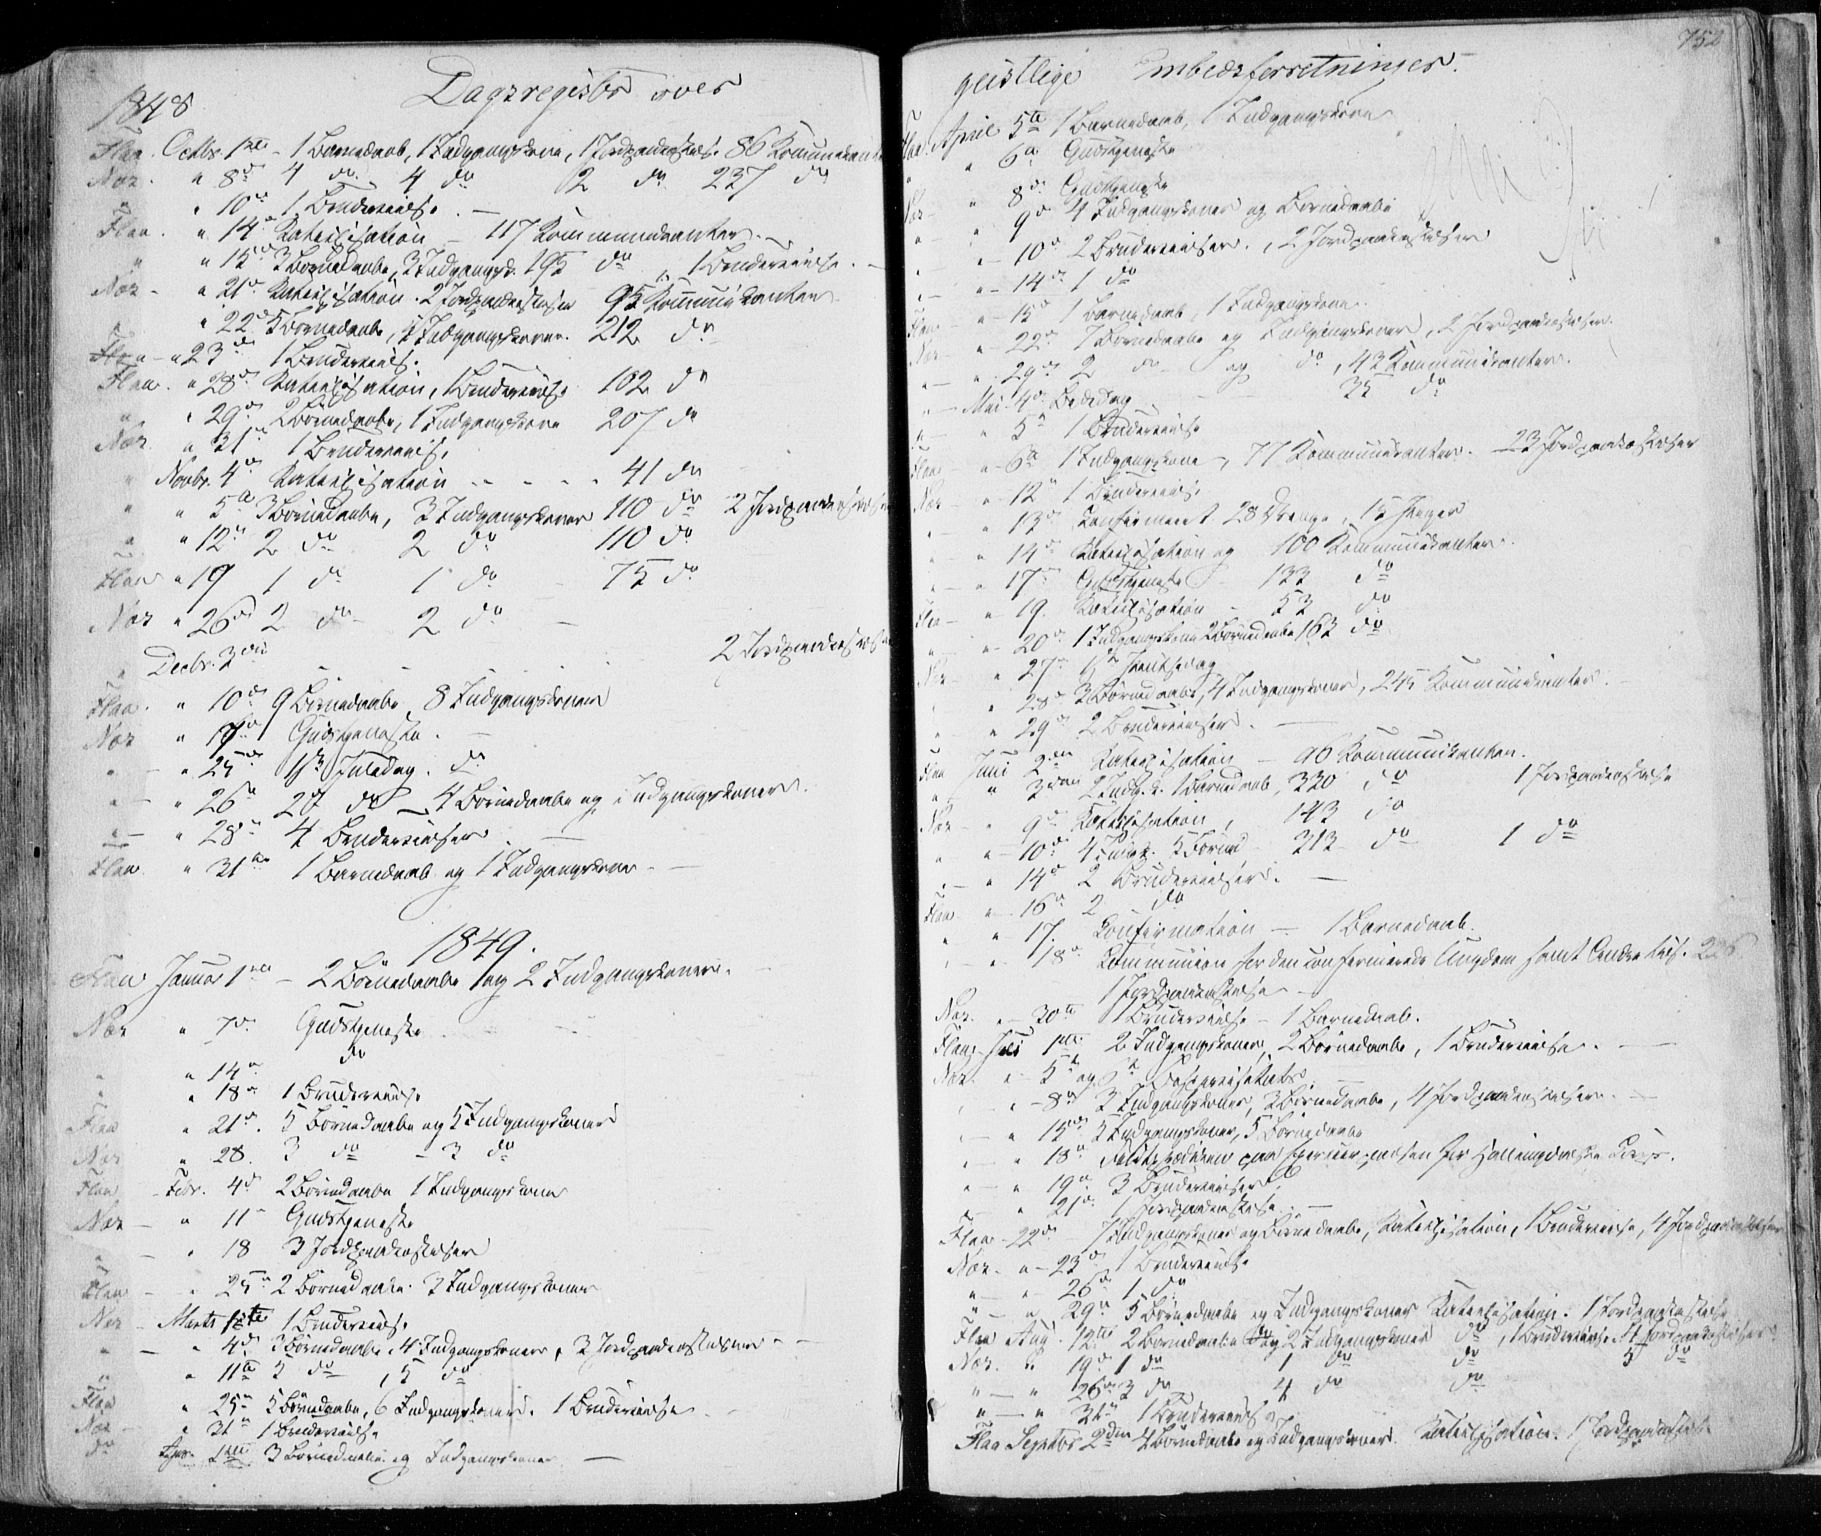 Dagsregister over
1848
Flaa. Octbr. 1ste - 1 Barnedaab, 1 Indgangskone, 1 Jordpaakastelse 86 Kommunikanter
Nes. " 8de 4 do 4 do 2 do 237 do
" " 10de 1 Brudevielse. -
Flaa. " 14de Katechisation - 117 Kommunikanter. -
" " 15de 3 Børnedaabe, 3 Indgangsk. 195 do, 1 Brudevielse. -
Nes - " 21de Katechisation. 2 Jordpaakastelser 95 Kommunikanter
" " 22de 5 Børnedaabe, Indgangskoner. 212 do
" 23de 1 Brudevielse.
Flaa. " 28de Katechisation, 1 Brudevielse 162 do
" " 29de 2 Børnedaabe, 1 Indgangskone 207 do
Nes. " 31te 1 Brudevielse.
" Novbr. 4de Katechisation - - - - 41 do
" " 5te 3 Børnedaabe, 3 Indgangskoner 110 do 2 Jordpaakastelser
" " 12te 2 do 2 do 110 do
Flaa " 19 1 do 1 do - 75 do
Nes " 26de 2 do 2 do -
" Decbr. 3die 2 Jordpaakastelser
Flaa. " 10de 9 Børnedaabe 8 Indgangskoner
Nes " 17de Gudstjeneste. -
" - " 25de 1ste Juledag. do
" - " 26de 2d do - 4 Børnedaabe og Indgangskoner.
" - " 28de 4 Brudevielser -
Flaa. " 31te 1 Barnedaab og 1 Indgangskone - -
1849.
Flaa Januar 1ste - 2 Børnedaabe og 2 Indgangskoner.
Nes " 7de Gudstjeneste
" " 14de do
" " 18de 1 Brudevielse
Flaa " 21de. 5 Børnedaabe og 5 Indgangskoner
Nes " 28. 3 do - 3 do
Flaa - Febr. 4de 2 Børnedaabe 1 Indgangskone
Nes - " 11te Gudstjeneste
" - " 18 3 Jordpaakastelser
Flaa - " 25de 2 Børnedaabe. 3 Indgangskoner
Nes - Marts 1ste 1 Brudevielse
" - " 4de 3 Børnedaabe, 4 Indgangskoner, 3 Jordpaakastelser - -
" " 11te 5 do, 5 do
Flaa " 25de 5 Børnedaabe, 6 Indgangskoner. 1 Brudevielse -
Nes - " 31te 1 Brudevielse
do Apr. 1ste 3 Børnedaabe og Indgangskoner -
752
geistlige Embedsforretninger.
Flaa. April 5te 1 Barnedaab, 1 Indgangskone
" " 6te Gudstjeneste
" " 8de Gudstjeneste
Nes - " 9de 4 Indgangskoner og Børnedaabe
" - " 10de 2 Brudevielser., 2 Jordpaakastelser
" - " 14de 1 do
" - " 15de 1 Barnedaab, 1 Indgangskone
Flaa - " 22de 7 Børnedaabe og Indgangskoner, 2 Jordpaakastelser.
Nes - " 29de 2 do - og do, 43 Kommunikanter.
" - Mai 4de Bededag - - 35 do
" - " 5te 1 Brudevielse
Flaa - " 6te 1 Indgangskone -, 77 Kommunikanter. 23 Jordpaakastelser
Nes - " 12te 1 Brudevielse
" - " 13de Konfirmeret 28 Drenge, 15 Piger
" - " 14de Katechisation og 100 Kommunikanter.
" - " 17de Gudstjeneste - 133 do
Flaa - " 19. Katechisation - 53 do
" - " 20de 1 Indgangskone 2 Børnedaabe 163 do
Nes - " 27de 1ste Pintsedag
" " 28de 3 Børnedaabe, 4 Indgangskoner, 245 Kommunikanter. -
" " 29de 2 Brudevielser. -
Flaa Juni 2den Katechisation - 96 Kommunikanter.
" " 3die 2 Indg.k. 1 Barnedaab, 330 do 1 Jordpaakastelse
Nes - " 9de Katechisation, 143 do
" " 10de 4 Indgk. 5 Børned 313 do 1 do
" - " 14de 2 Brudevielser. -
Flaa - " 16de 2 do
" " 17. Konfirmation - 1 Barnedaab.
" - " 18de Kommunion for den confirmerede Ungdom samt Andre 226
1 Jordpaakastelse -
Nes. " 30te 1 Brudevielse - 1 Barnedaab.
Flaa Juli 1ste 2 Indgangskoner, 2 Børnedaabe, 1 Brudevielse. -
Nes. " 5te og 6te Bispevisitats
" " 8de 3 Indgangskoner, 3 Børnedaabe, 4 Jordpaakastelser. -
" - " 15de 3 Indgangskoner, 5 Børnedaabe
" - " 18de paa for Hallingdalske
" - " 19de 3 Brudevielser
" - " 21de 1 Jordpaakastelse. -
Flaa - 22de 7 Indgangskoner og Børnedaabe, Katechisation, 1 Brudevielse, 4 Jordpaakastelser
Nes. " 23de 1 Brudevielse
" - " 26de 1 do
" - " 29de 5 Børnedaabe og Indgangskoner Katechisation. 1 Jordpaakastelse
Flaa Aug. 12te 2 Børnedaabe og 2 Indgangskoner do, 1 Brudevielse 4 Jordpaakastelser
Nes. " 19de 1 do 1 do do 5 do
" - " 26de 3 do 4 do do
" - " 31te 1 Brudevielse
Flaa Septbr 2den 4 Børnedaabe og Indgangskoner. Katechisation. 1 Jordpaakastelse